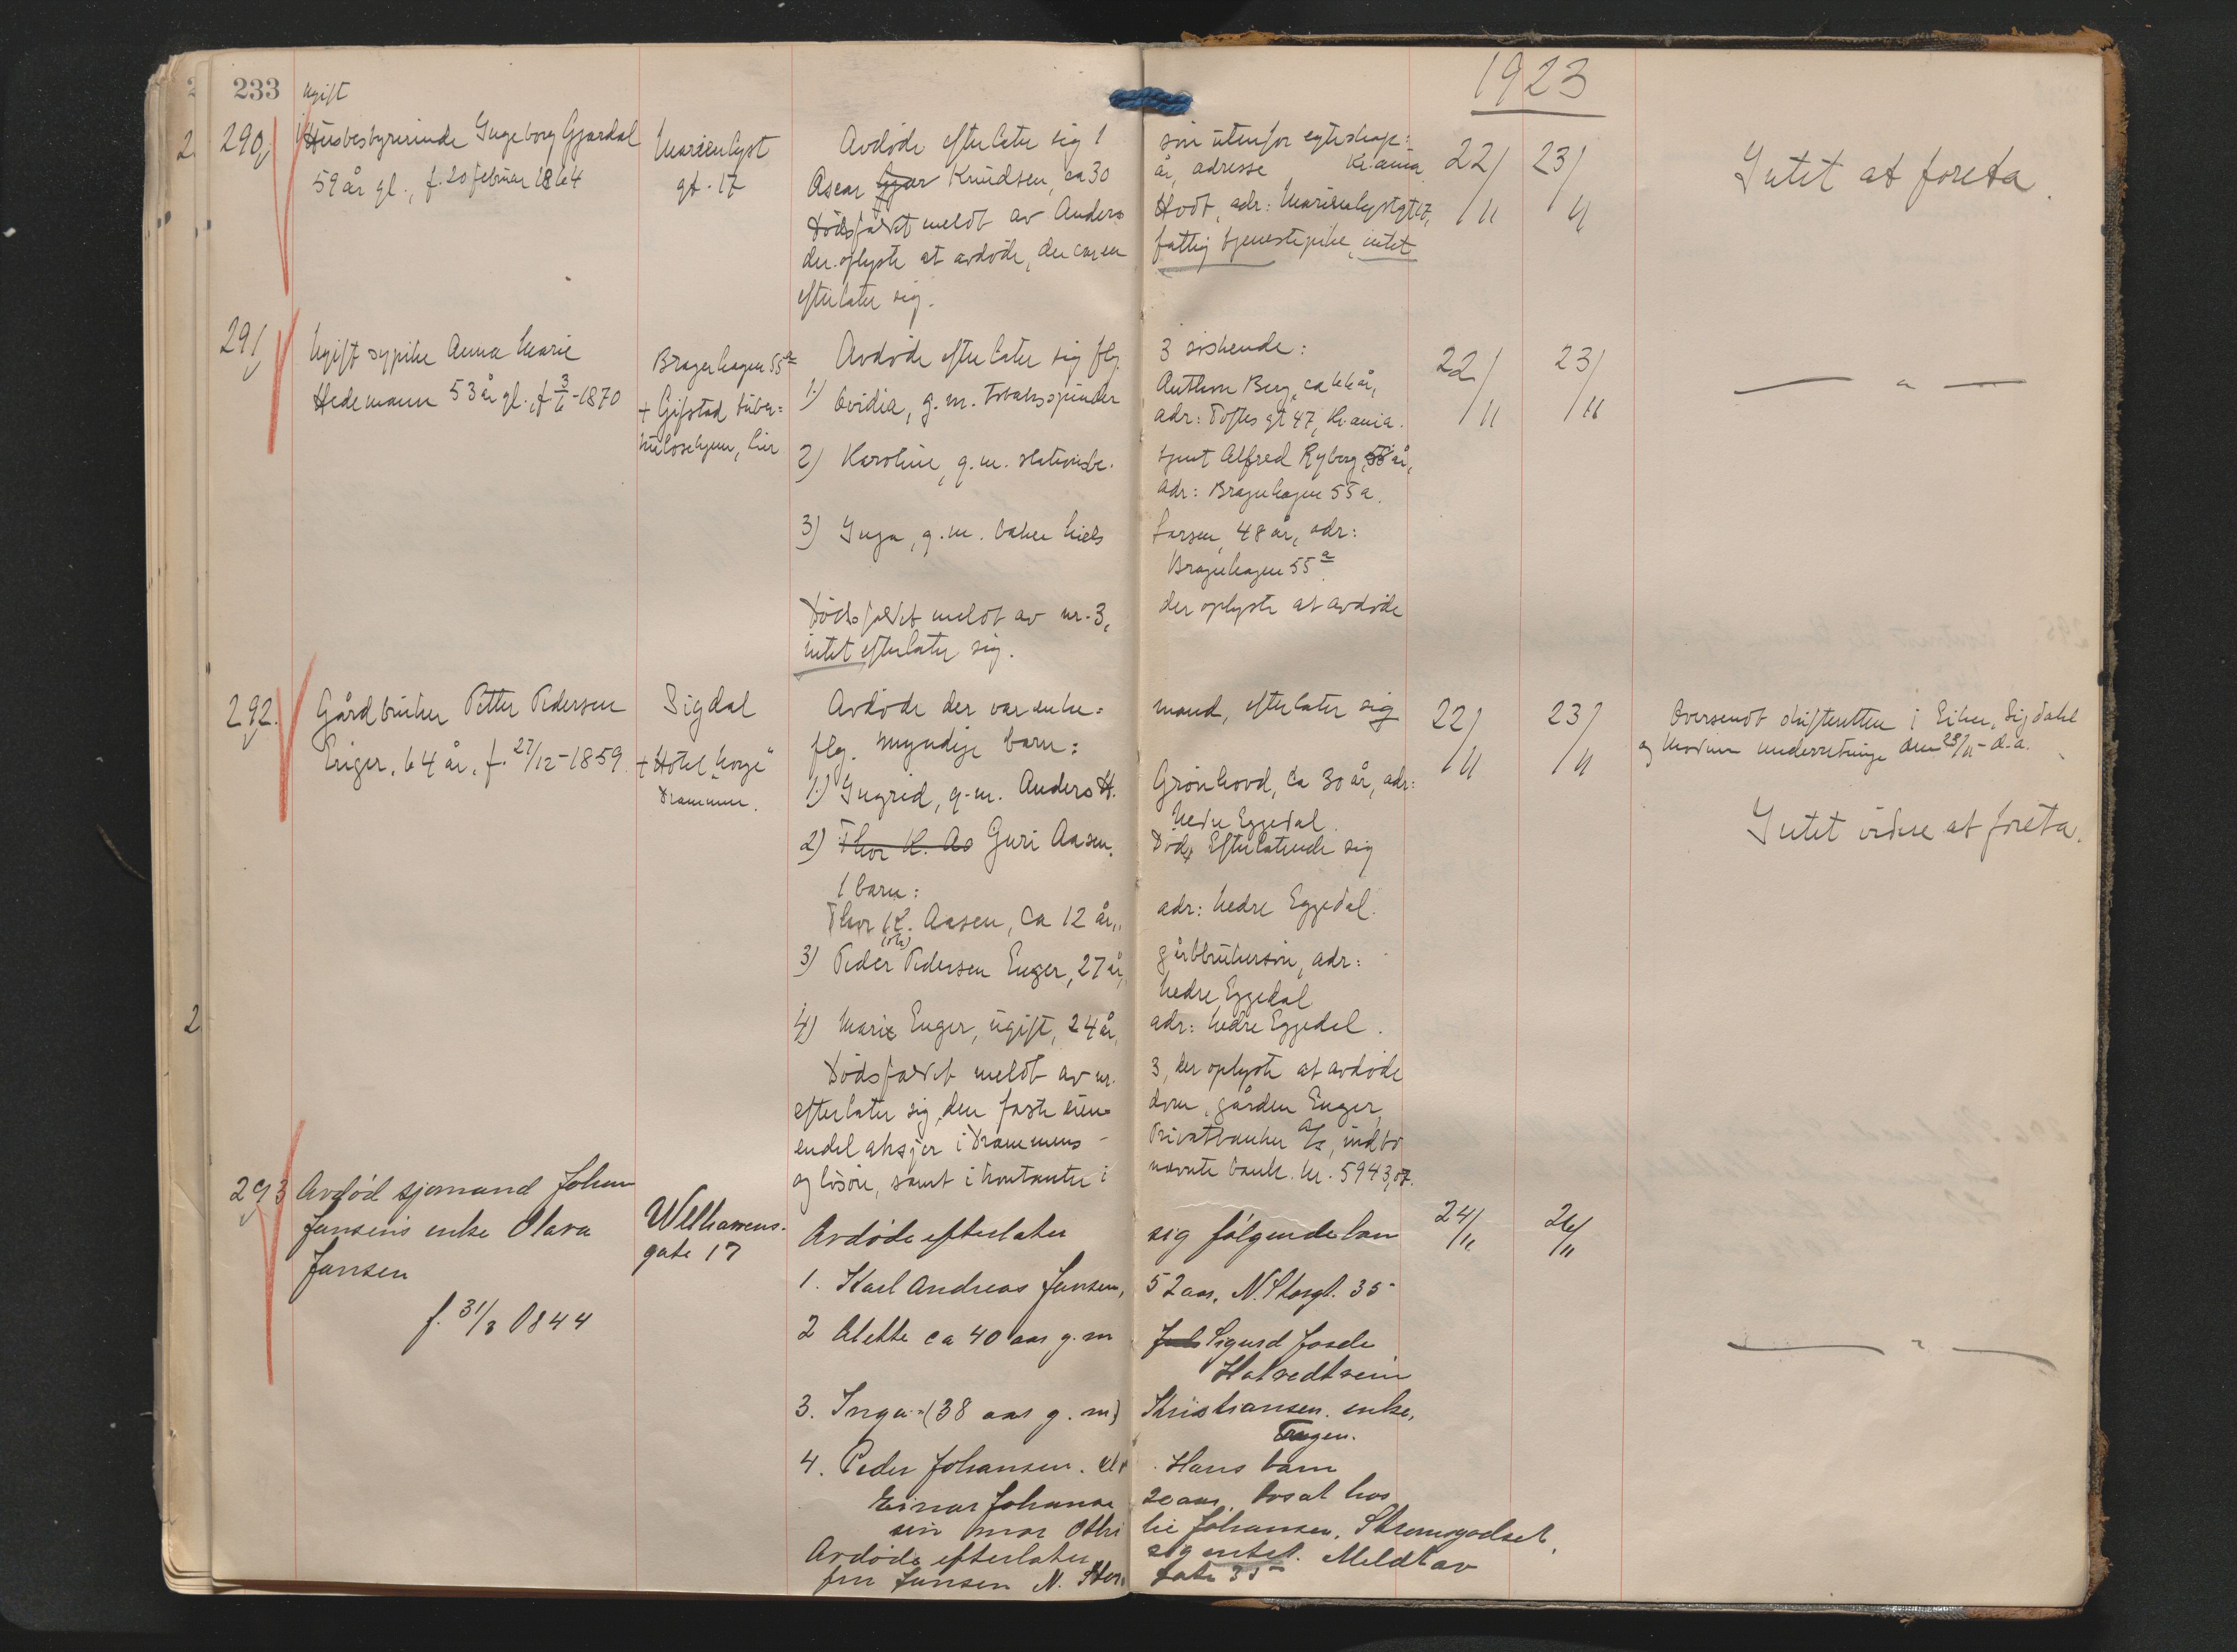 1923
233
ugift
290, Husbestyrerinde Ingeborg Gjardal
59 år gl., f. 20 februar 1864
Marienlyst
gt. 17
Avdøde efterlater sig 1 søn utenfor egteskap:
Oscar Knudsen, ca 30 år, adresse Kr.ania
Dødsfaldet meldt av Anders Hodt, adr: Marienlystgt 17,
der oplyste at avdøde, der var en fattig tjenestepike, intet
efterlater sig.
22/11 23/11
Intet at foreta.
291, Ugift sypike Anna Marie
Hedemann 53 år gl., f 3/6-1870
Bragerhagen 55a
+ Gifstad tuber=
kulosehjem, her
Avdøde efterlater sig flg. 3 søskende:
1.) Ovidia, g.m. tobakspinder Anthon Berg, ca 66 år,
adr: Toftes gt 47, Kr.ania.
2) Karoline, g.m. stationsbe. tjent Alfred Ryberg, 58 år,
adr: Bragerhagen 55a.
3) Inga, g.m. baker Niels Larsen, 48 år, adr:
Bragerhagen 55a
Dødsfaldet meldt av nr. 3, der oplyste at avdøde
intet efterlater sig.
22/11 23/11
— " —
292. Gårdbruker Petter Pedersen
Enger, 64 år, f. 27/12-1859
Sigdal
+ Hotel "Norge"
Drammen.
Avdøde der var enke= mand, efterlater sig
flg. myndige barn:
1.) Ingrid, g.m. Anders H. Grønhovd, ca 30 år, adr:
Nedre Eggedal.
2) Thor K. Aa Guri Aasen, Død, Efterlatende sig
1 barn:
Thor K. Aasen, ca 12 år, adr: Nedre Eggedal.
3) Peder Pedersen Enger, 27 år, gårdbrukersøn, adr:
Nedre Eggedal
4) Marie Enger, ugift, 24 år, adr: Nedre Eggedal.
Dødsfaldet meldt av nr. 3, der oplyste at avdøde
efterlater sig den faste eien= dom, gården Enger,
endel aksjer i Drammens Privatbanker A/S, indbo
og løsøre, samt i kontanter i nævnte bank. kr. 5943,07.
22/11 23/11
Oversendt skifteretten i Eiker, Sigdahl
og Modum underretning den 23/11- d.a.
Intet videre at foreta.
293 Avdød sjømand Johan
Jansens enke Olava
Jansen
f. 31/3 1844
Welhavens-
gate 17
Avdøde efterlater sig følgende barn
1. Karl Andreas Jansen, 52 aar, N. Storgt. 35
2 Alette ca 40 aar g.m Sigurd
3. Inga (38 aar g.m) Kristiansen. enke,
Tangen.
4. Peder Johansen. Hans barn
Einar Johanse 20 aar, bosat hos
sin mor Othi lie Johansen, Strømsgodset.
Avdøde efterlater sig intet. Meldt av
fru Jansen N. Stor gate 35
24/11 26/11
— " —